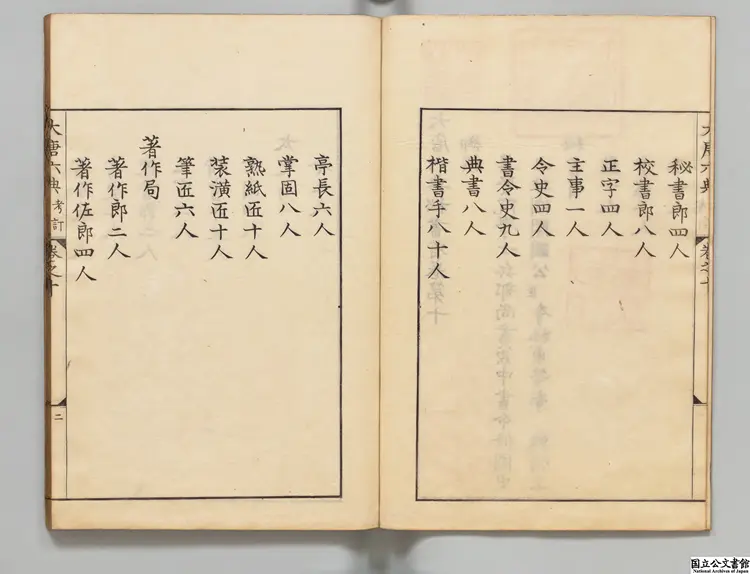 秘書郎四人
校書郎八人
正字四人
主事一人
令史四人
書令史九人
典書八人
楷書手八十人
亭長六人
掌固八人
熟紙匠十人
装潢匠十人
筆匠六人
著作局
著作郎二人
著作佐郎四人
大唐六典考訂
卷之十
二
国立公文書館
National Archives of Japan